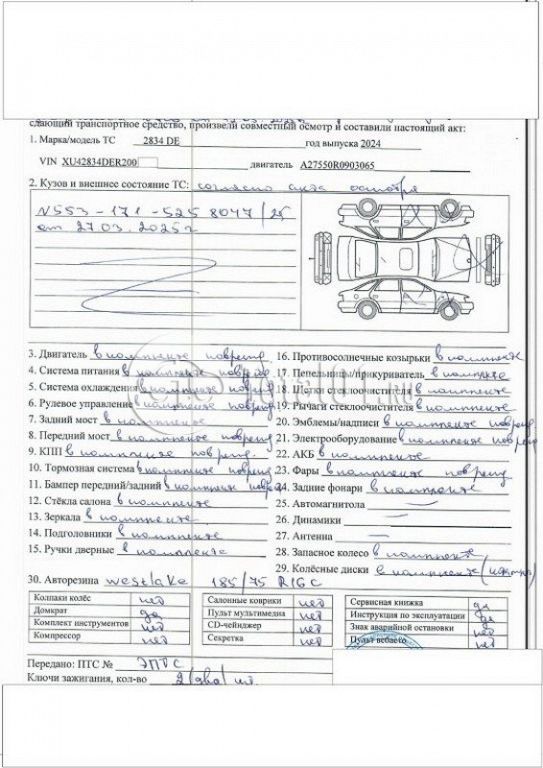 слающий транспортное средство, произвели совместный осмотр и составили настоящий акт:
1. Марка/модель ТС 2834 DE год выпуска 2024
VIN XU42834DER200 двигатель A27550R0903065
2. Кузов и внешнее состояние ТС: согласно акта осмотра
N553-171-525 8047/25
от 27.03.2025г
3. Двигатель в комплекте поврежд
16. Противосолнечные козырьки в комплекте
4. Система питания в комплекте поврежд
17. Пепельницы/прикуриватель в комплекте
5. Система охлаждения в комплекте поврежд
18. Щетки стеклоочистителя в комплекте
6. Рулевое управление в комплекте поврежд
19. Рычаги стеклоочистителя в комплекте
7. Задний мост в комплекте
20. Эмблемы/надписи в комплекте поврежд
8. Передний мост в комплекте поврежд
21. Электрооборудование в комплекте поврежд
9. КПП в комплекте поврежд.
22. АКБ в комплекте
10. Тормозная система в комплекте поврежд
23. Фары в комплекте поврежд
11. Бампер передний/задний в комплекте поврежд
24. Задние фонари в комплекте
12. Стёкла салона в комплекте
25. Автомагнитола —
13. Зеркала в комплекте
26. Динамики —
14. Подголовники в комплекте
27. Антенна —
15. Ручки дверные в комплекте
28. Запасное колесо в комплекте
29. Колёсные диски в комплекте
30. Авторезина westlake 185/75 R16C
Колпаки колёс нет
Домкрат да
Комплект инструментов нет
Компрессор нет
Салонные коврики нет
Пульт мультимедиа нет
CD-чейнджер нет
Секретка нет
Сервисная книжка да
Инструкция по эксплуатации да
Знак аварийной остановки нет
Пульт вебасто нет
Передано: ПТС № ЭПТС
Ключи зажигания, кол-во 2(два) шт.